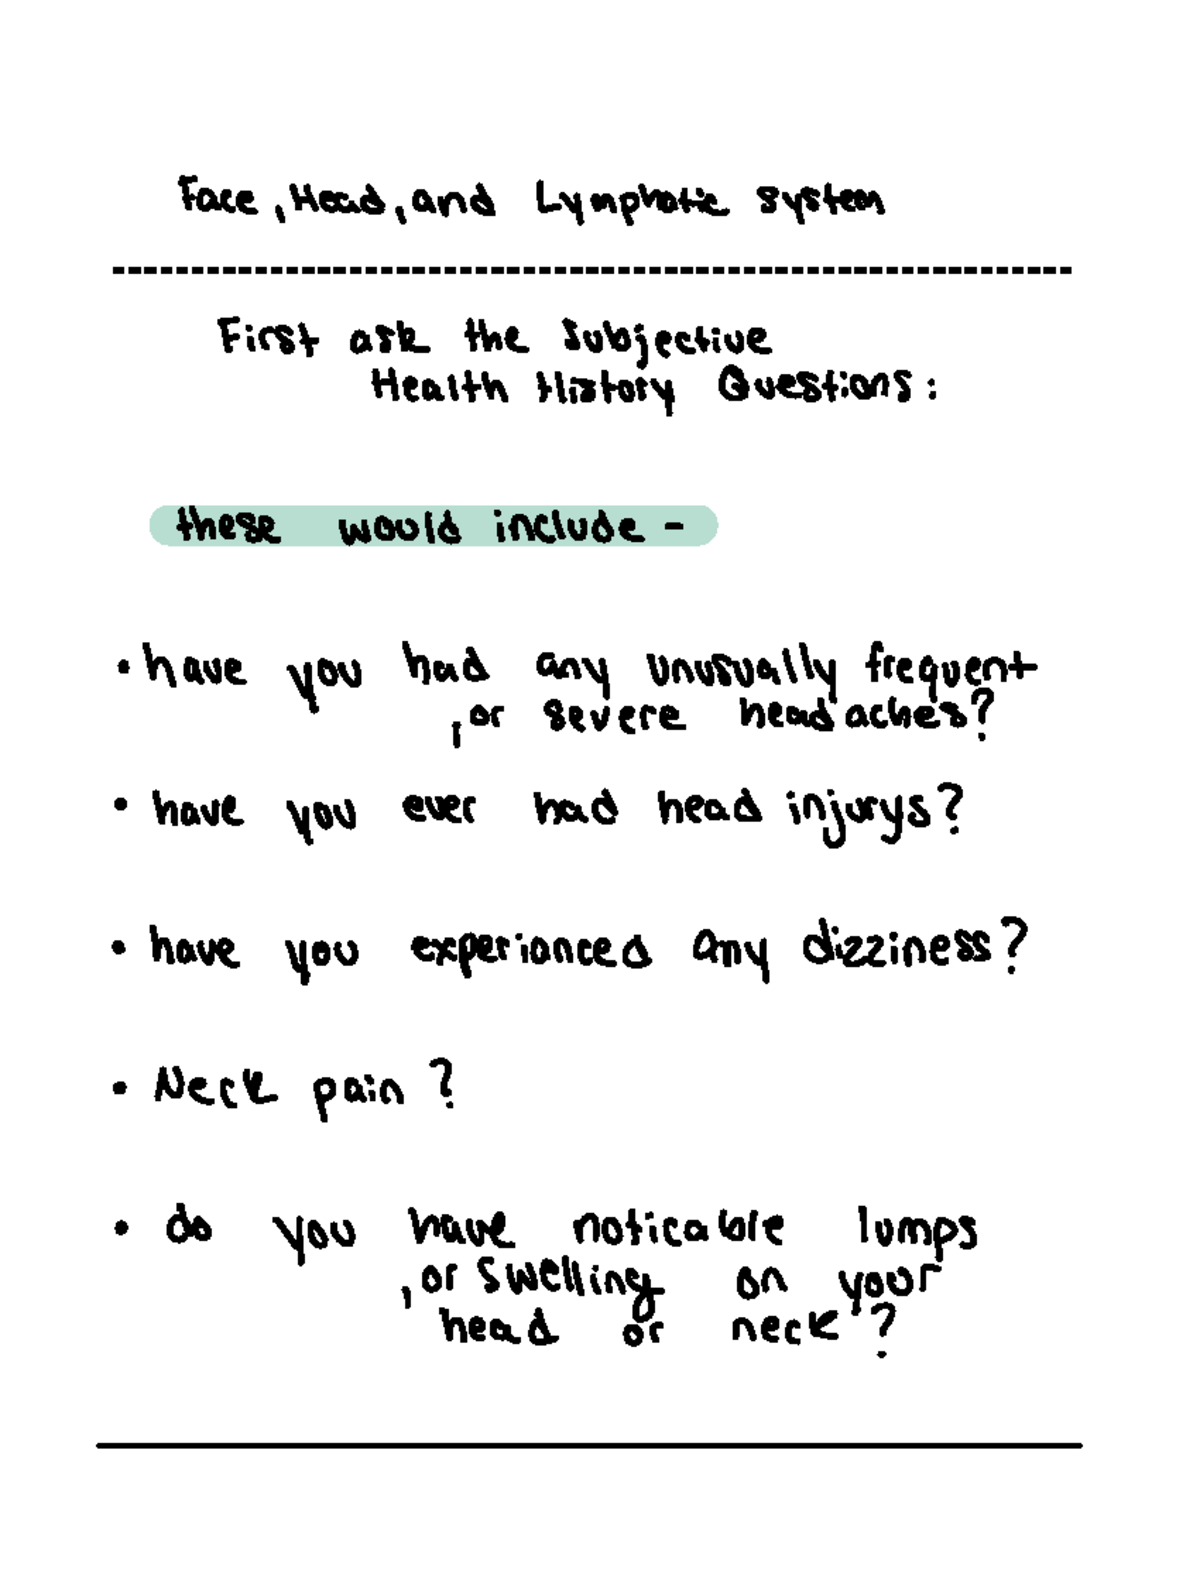 Face, Head, and Lymphatic system
First ask the Subjective
Health History Questions:
these would include -
• have you had any unusually frequent
, or severe headaches?
• have you ever had head injurys?
• have you experianced any dizziness?
• Neck pain?
• do you have noticable lumps
, or swelling on your
head or neck?